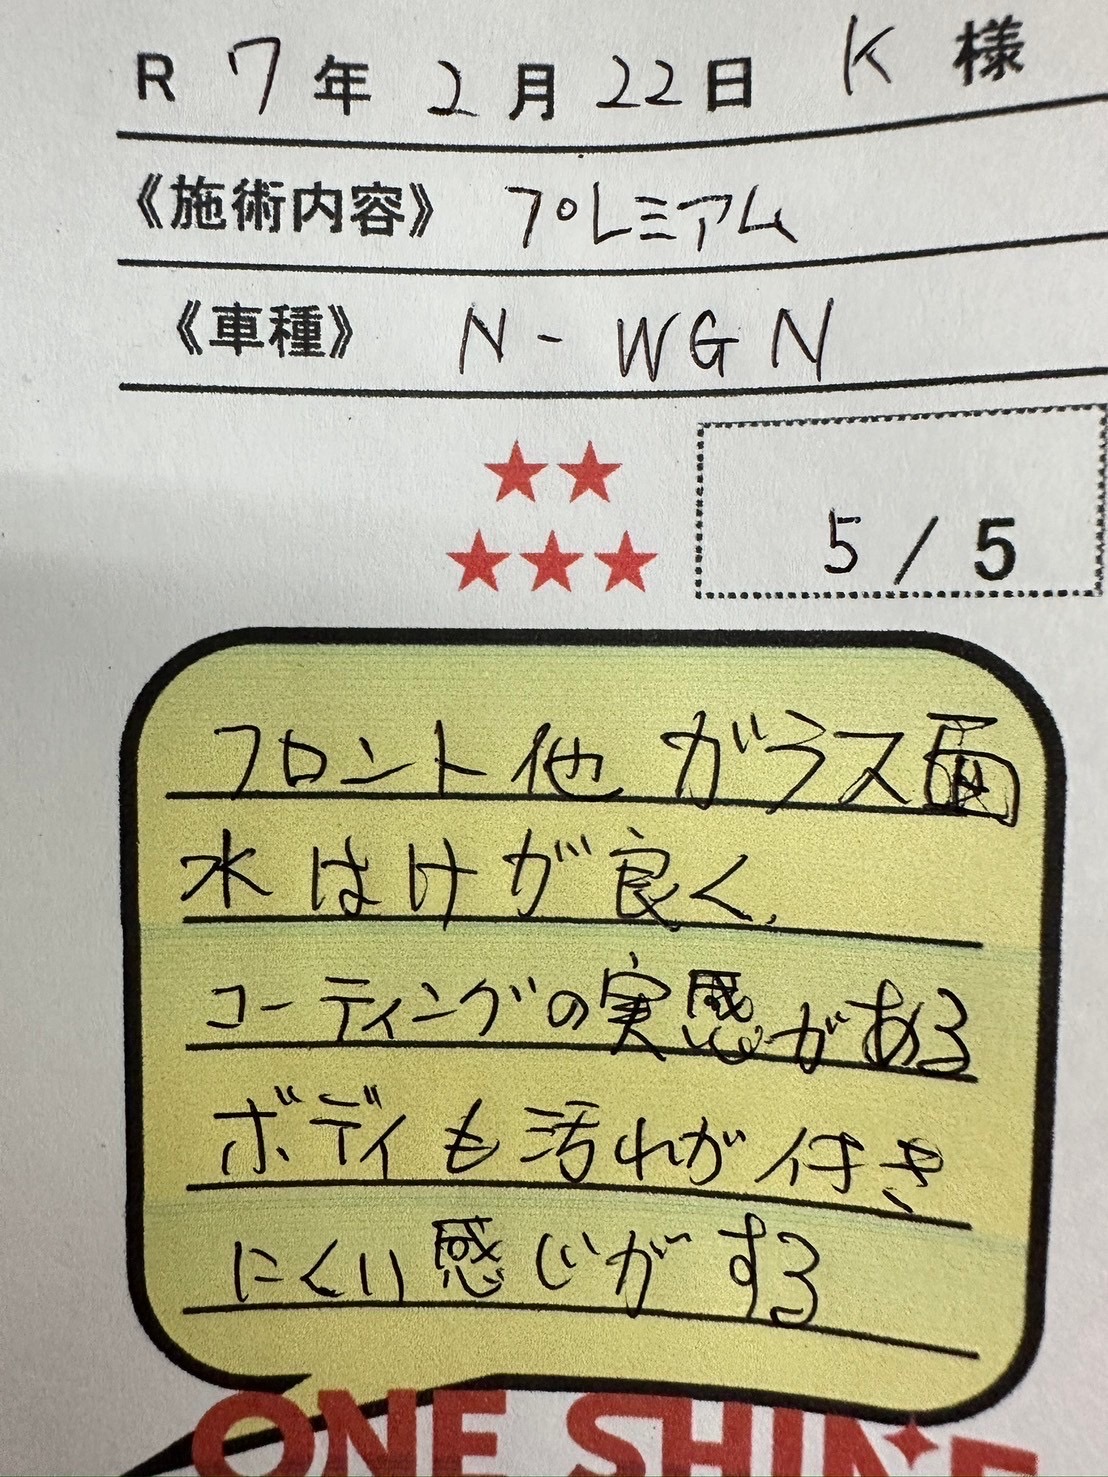 R 7年 2月 22日 K 様
《施術内容》 プレミアム
《車種》 N-WGN
5 / 5
フロント他 ガラス面
水はけが良く、
コーティングの実感がある
ボディも汚れが付き
にくい感じがする
ONE SHINE